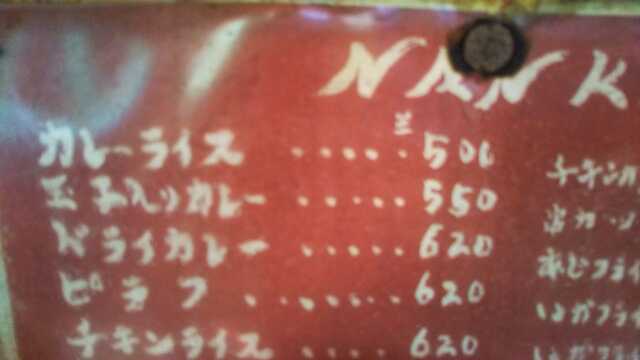 NANK
カレーライス ..... 500
玉子入りカレー ..... 550
ドライカレー ..... 620
ピラフ ....... 620
チキンライス ..... 620
チキンカ
あじフライ
いかフライ